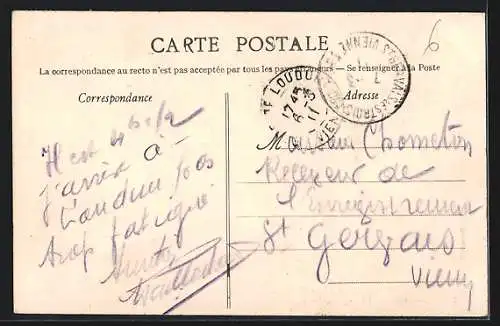 6
CARTE POSTALE
La correspondance au recto n'est pas acceptée par tous les pays étrangers — Se renseigner à la Poste
Correspondance
Adresse
LOUDUN
17 45
VIENNE
ST GERVAIS LES TROIS CLOCHERS VIENNE
Il est
j'arrive à
Loudun pas
trop fatigué
Monsieur Chometon
Receveur de
l'Enregistrement
St Gervais
Vienne